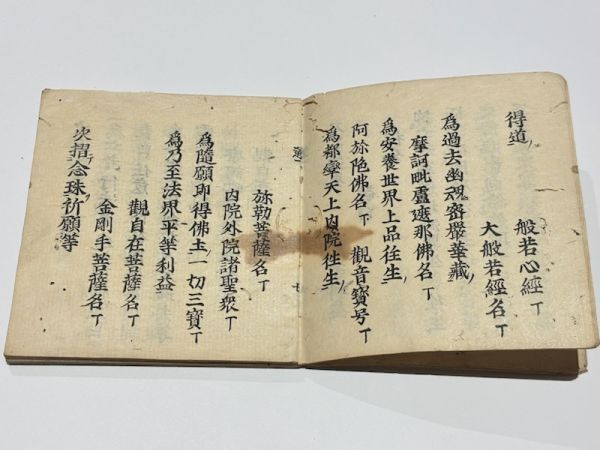 得道
般若心經丁
大般若經名丁
為過去幽魂密嚴華藏
摩訶毗盧遮那佛名丁
為安養世界上品往生
阿弥陁佛名丁 觀音寶号丁
為都率天上内院往生
弥勒菩薩名丁
内院外院諸聖衆丁
為隨願即得佛土一切三寶丁
為乃至法界平等利益
觀自在菩薩名丁
金剛手菩薩名丁
次摺念珠祈願等